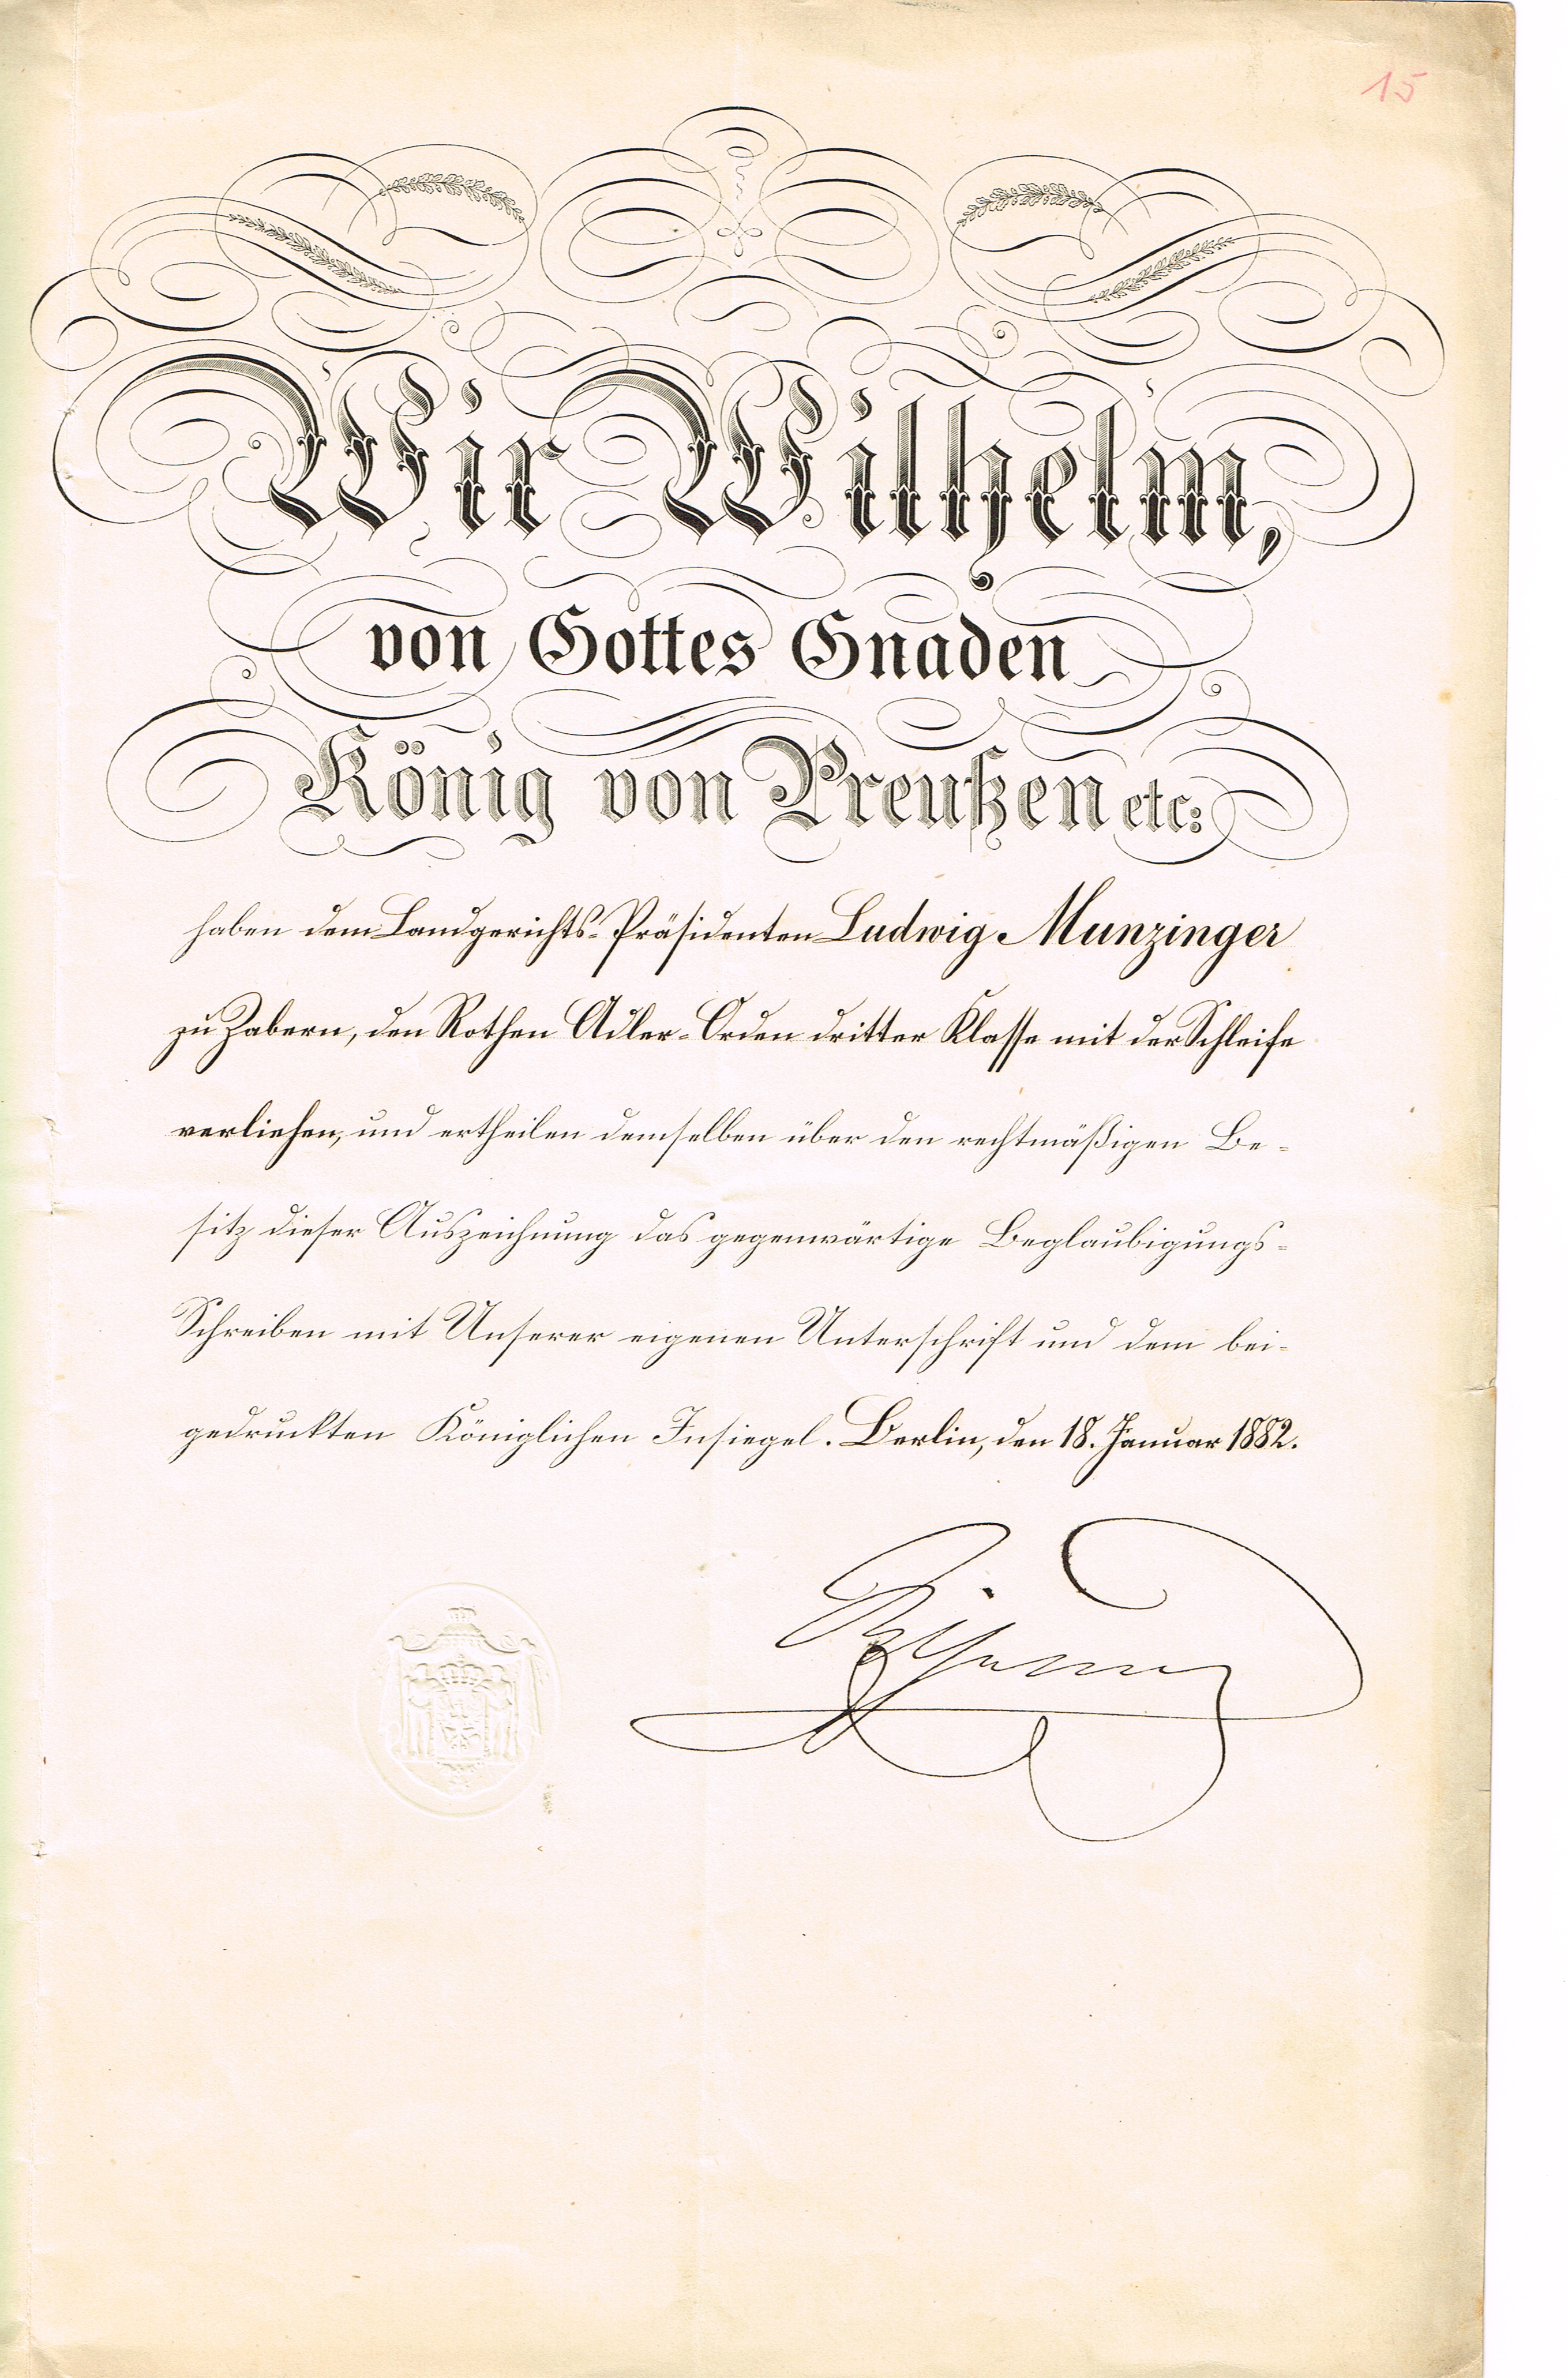 15
Wir Wilhelm,
von Gottes Gnaden
König von Preußen etc:
haben dem Landgerichts-Präsidenten Ludwig Munzinger
zu Zabern, den Rothen Adler-Orden dritter Klasse mit der Schleife
verliehen, und ertheilen demselben über den rechtmäßigen Be-
sitz dieser Auszeichnung das gegenwärtige Beglaubigungs-
Schreiben mit Unserer eigenen Unterschrift und dem bei-
gedruckten Königlichen Insiegel. Berlin, den 18. Januar 1882.
Wilhelm